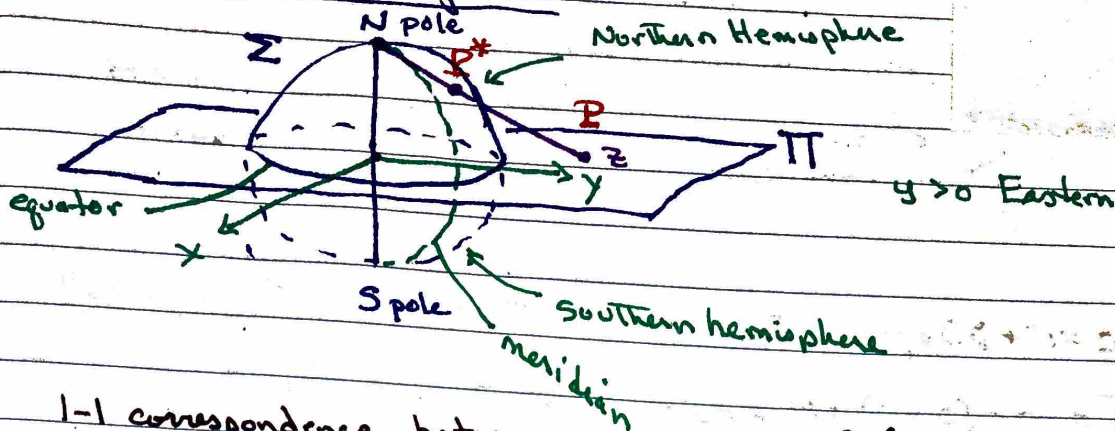 N pole
Σ
P*
Northern Hemisphere
P
z
Π
y
y>0 Eastern
equator
x
S pole
Southern hemisphere
meridian
1-1 correspondence